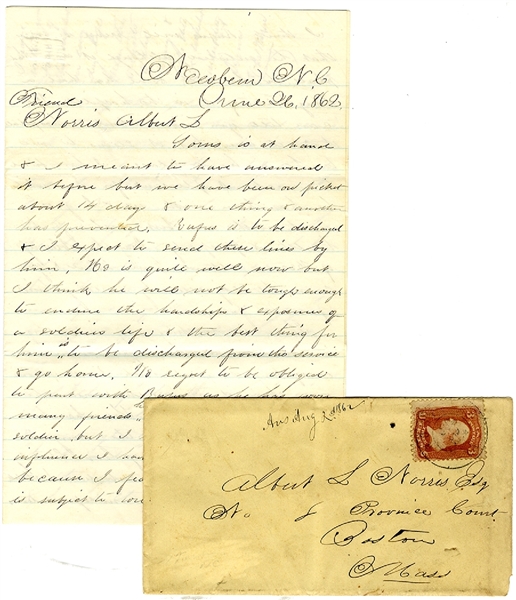 Newbern N.C
June 26, 1862.
Friend
Norris Albert L
Yours is at hand
& I meant to have answered
it before but we have been on picket
about 14 days & one thing & another
has prevented. Rufus is to be discharged
& I expect to send these lines by
him. He is quite well now but
I think he will not be tough enough
to endure the hardships & exposures of
a soldiers life & the best thing for
him is to be discharged from the service
& go home. We regret to be obliged
to part with Rufus as he has won
many friends
soldier, but I
influence I
because I
is subject to
Ans Aug 2d 1862
Albert L Norris Esq
No. 8 Province Court
Boston
Mass